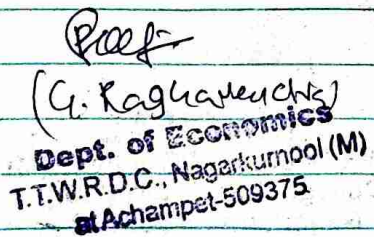 (G. Raghavendra)
Dept. of Economics
T.T.W.R.D.C., Nagarkurnool (M)
at Achampet-509375